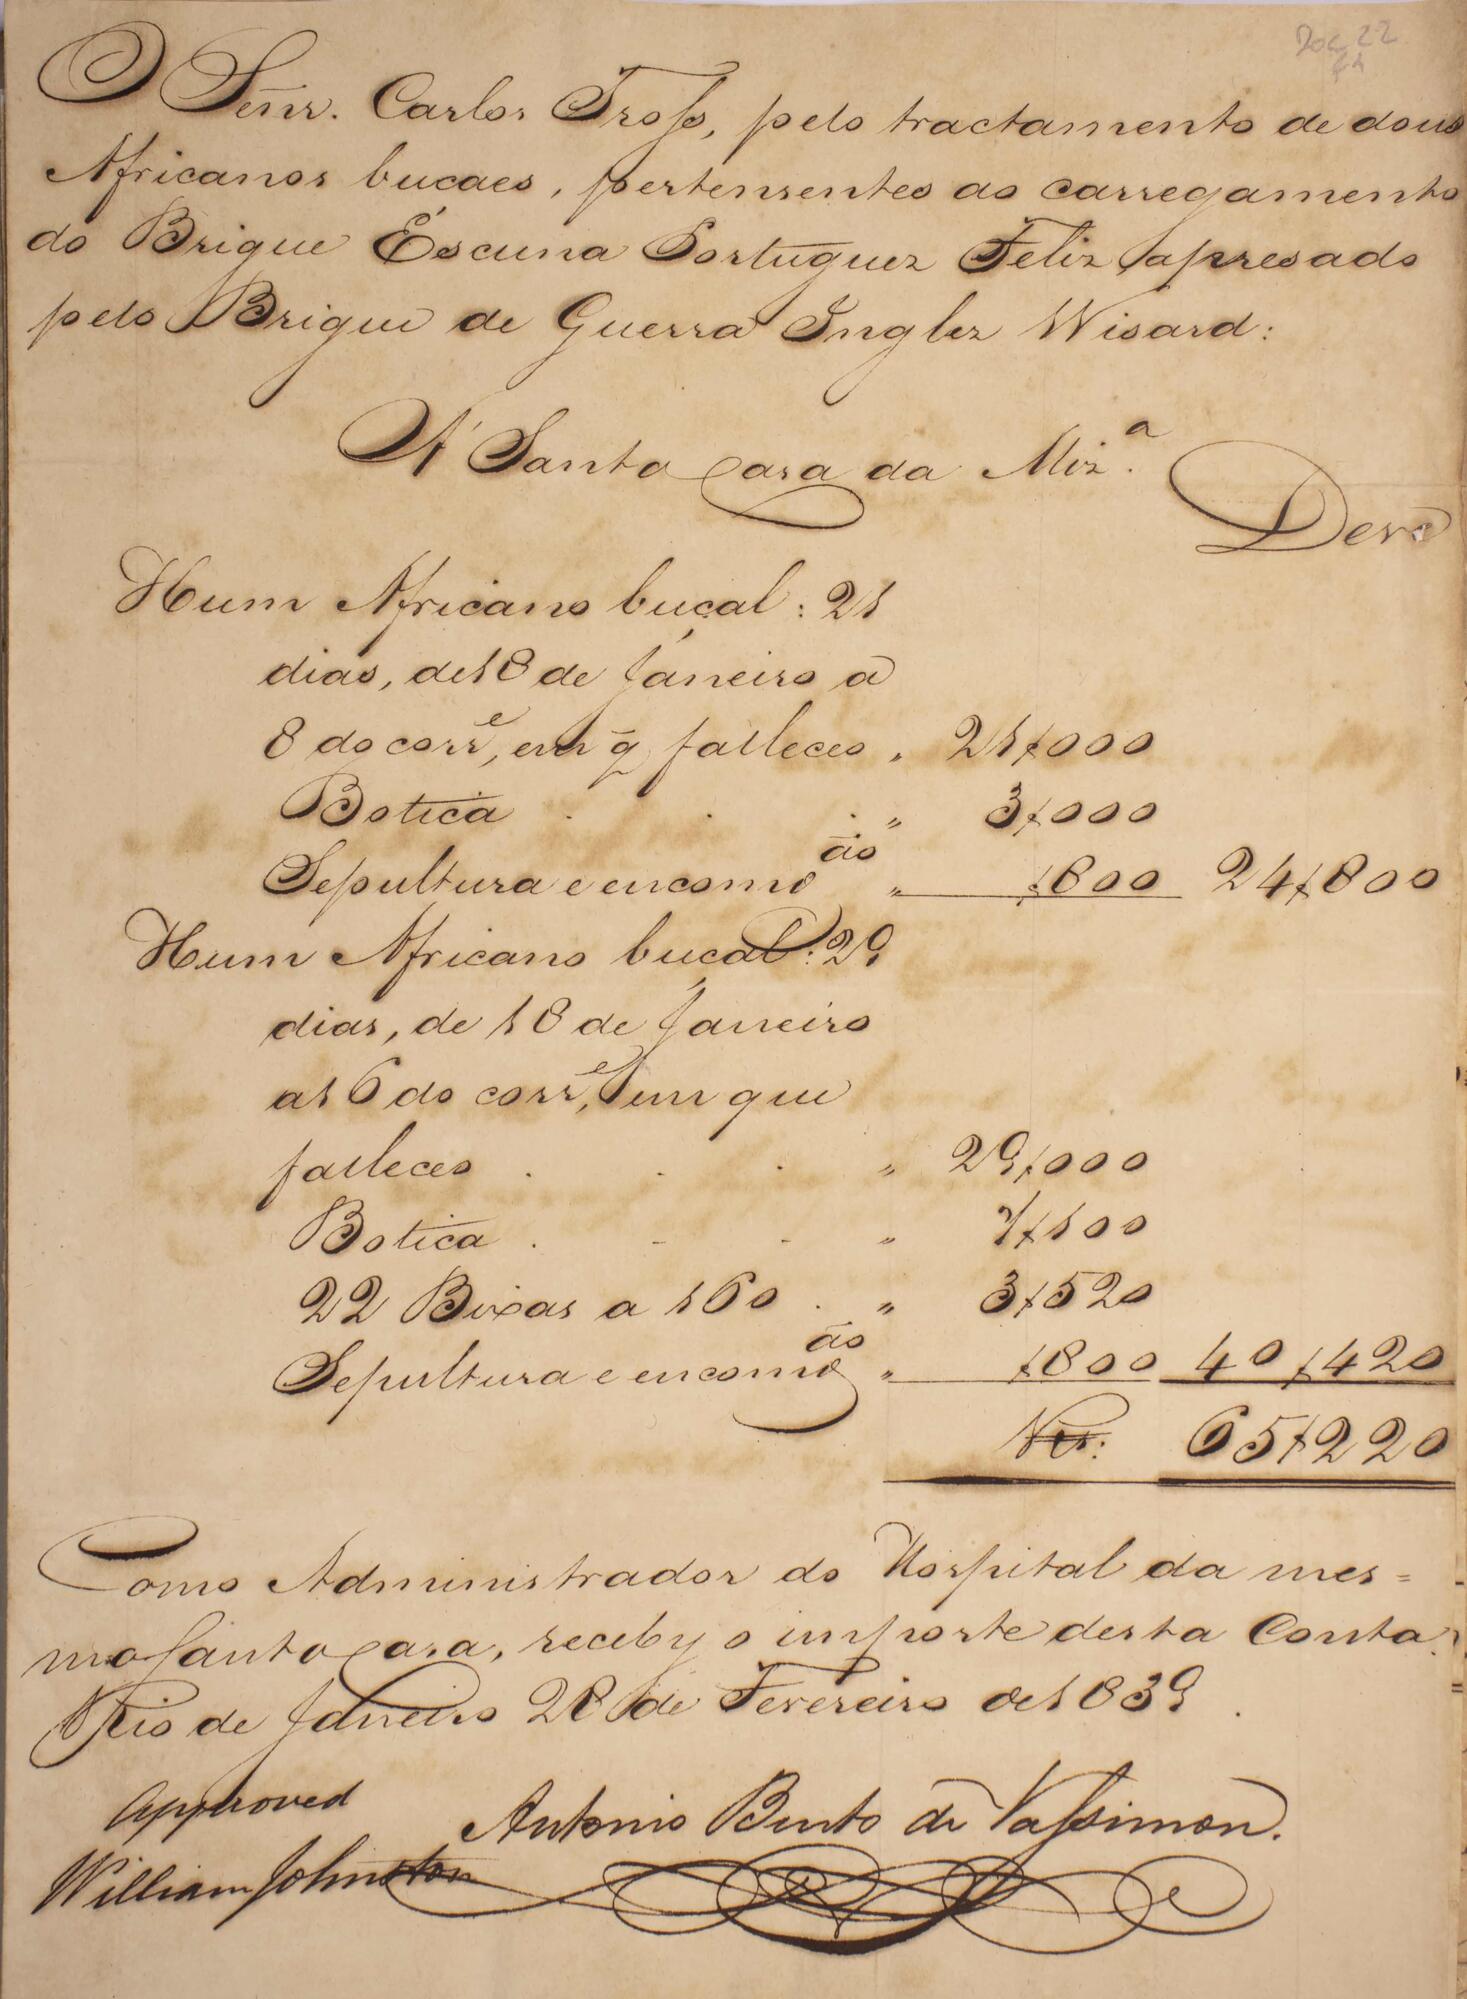 Doc 22
O Señr. Carlos Tross, pelo tractamento de dous
Africanos bucaes, pertensentes ao carregamento
do Brigue Escuna Portuguez Feliz apresado
pelo Brigue de Guerra Inglez Wisard:
A' Santa Casa da Miz.ª
Deve
Hum Africano buçal: 21
dias, de 18 de Janeiro a
8 do corr.e, em q̃ falleceo „ 21$000
Botica . . . „ 3$000
Sepultura e encomd.ão „ $800 24$800
Hum Africano buçal: 29
dias, de 18 de Janeiro
a 16 do corr.e, em que
falleceo . . . „ 29$000
Botica . - - „ 7$100
22 Bixas a 160 . „ 3$520
Sepultura e encomd.ão „ $800 40$420
Rs: 65$220
Como Administrador do Hospital da mes=
ma Santa Casa, receby o importe desta Conta.
Rio de Janeiro 28 de Fevereiro de 1839.
Approved
Antonio Bento de Vassimon.
William Johnston